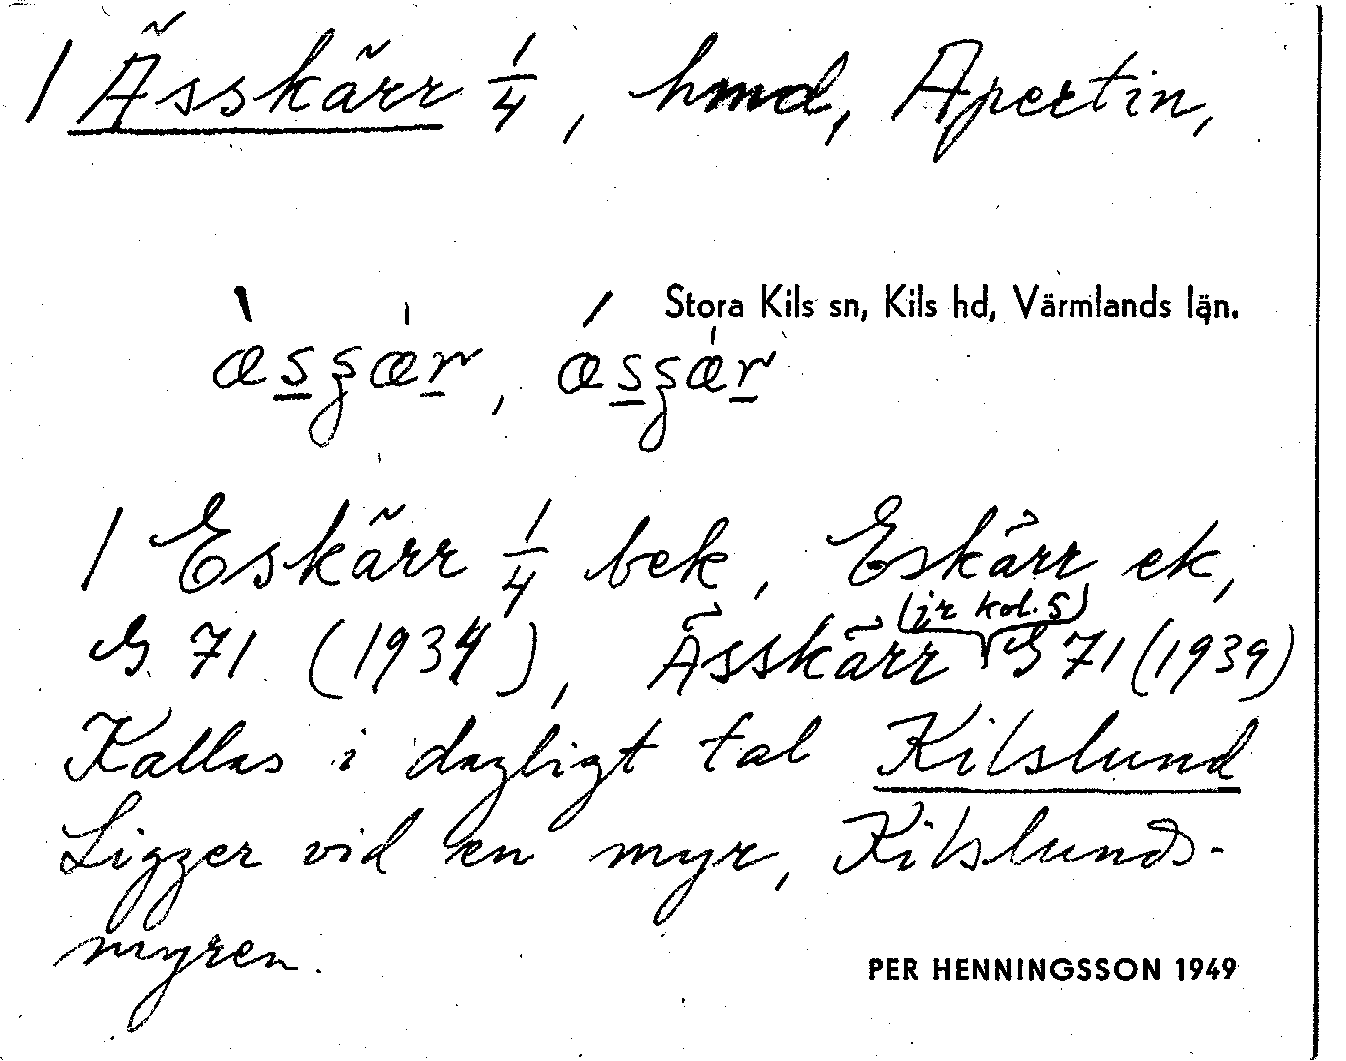 / Ässkärr 1/4, hmd, Apertin,
Stora Kils sn, Kils hd, Värmlands län.
/ Eskärr 1/4 bek, Eskärr ek,
(jr kol. 5)
G 71 (1934), Ässkärr G 71 (1939)
Kallas i dagligt tal Kilslund
Ligger vid en myr, Kilslunds-
myren.
PER HENNINGSSON 1949